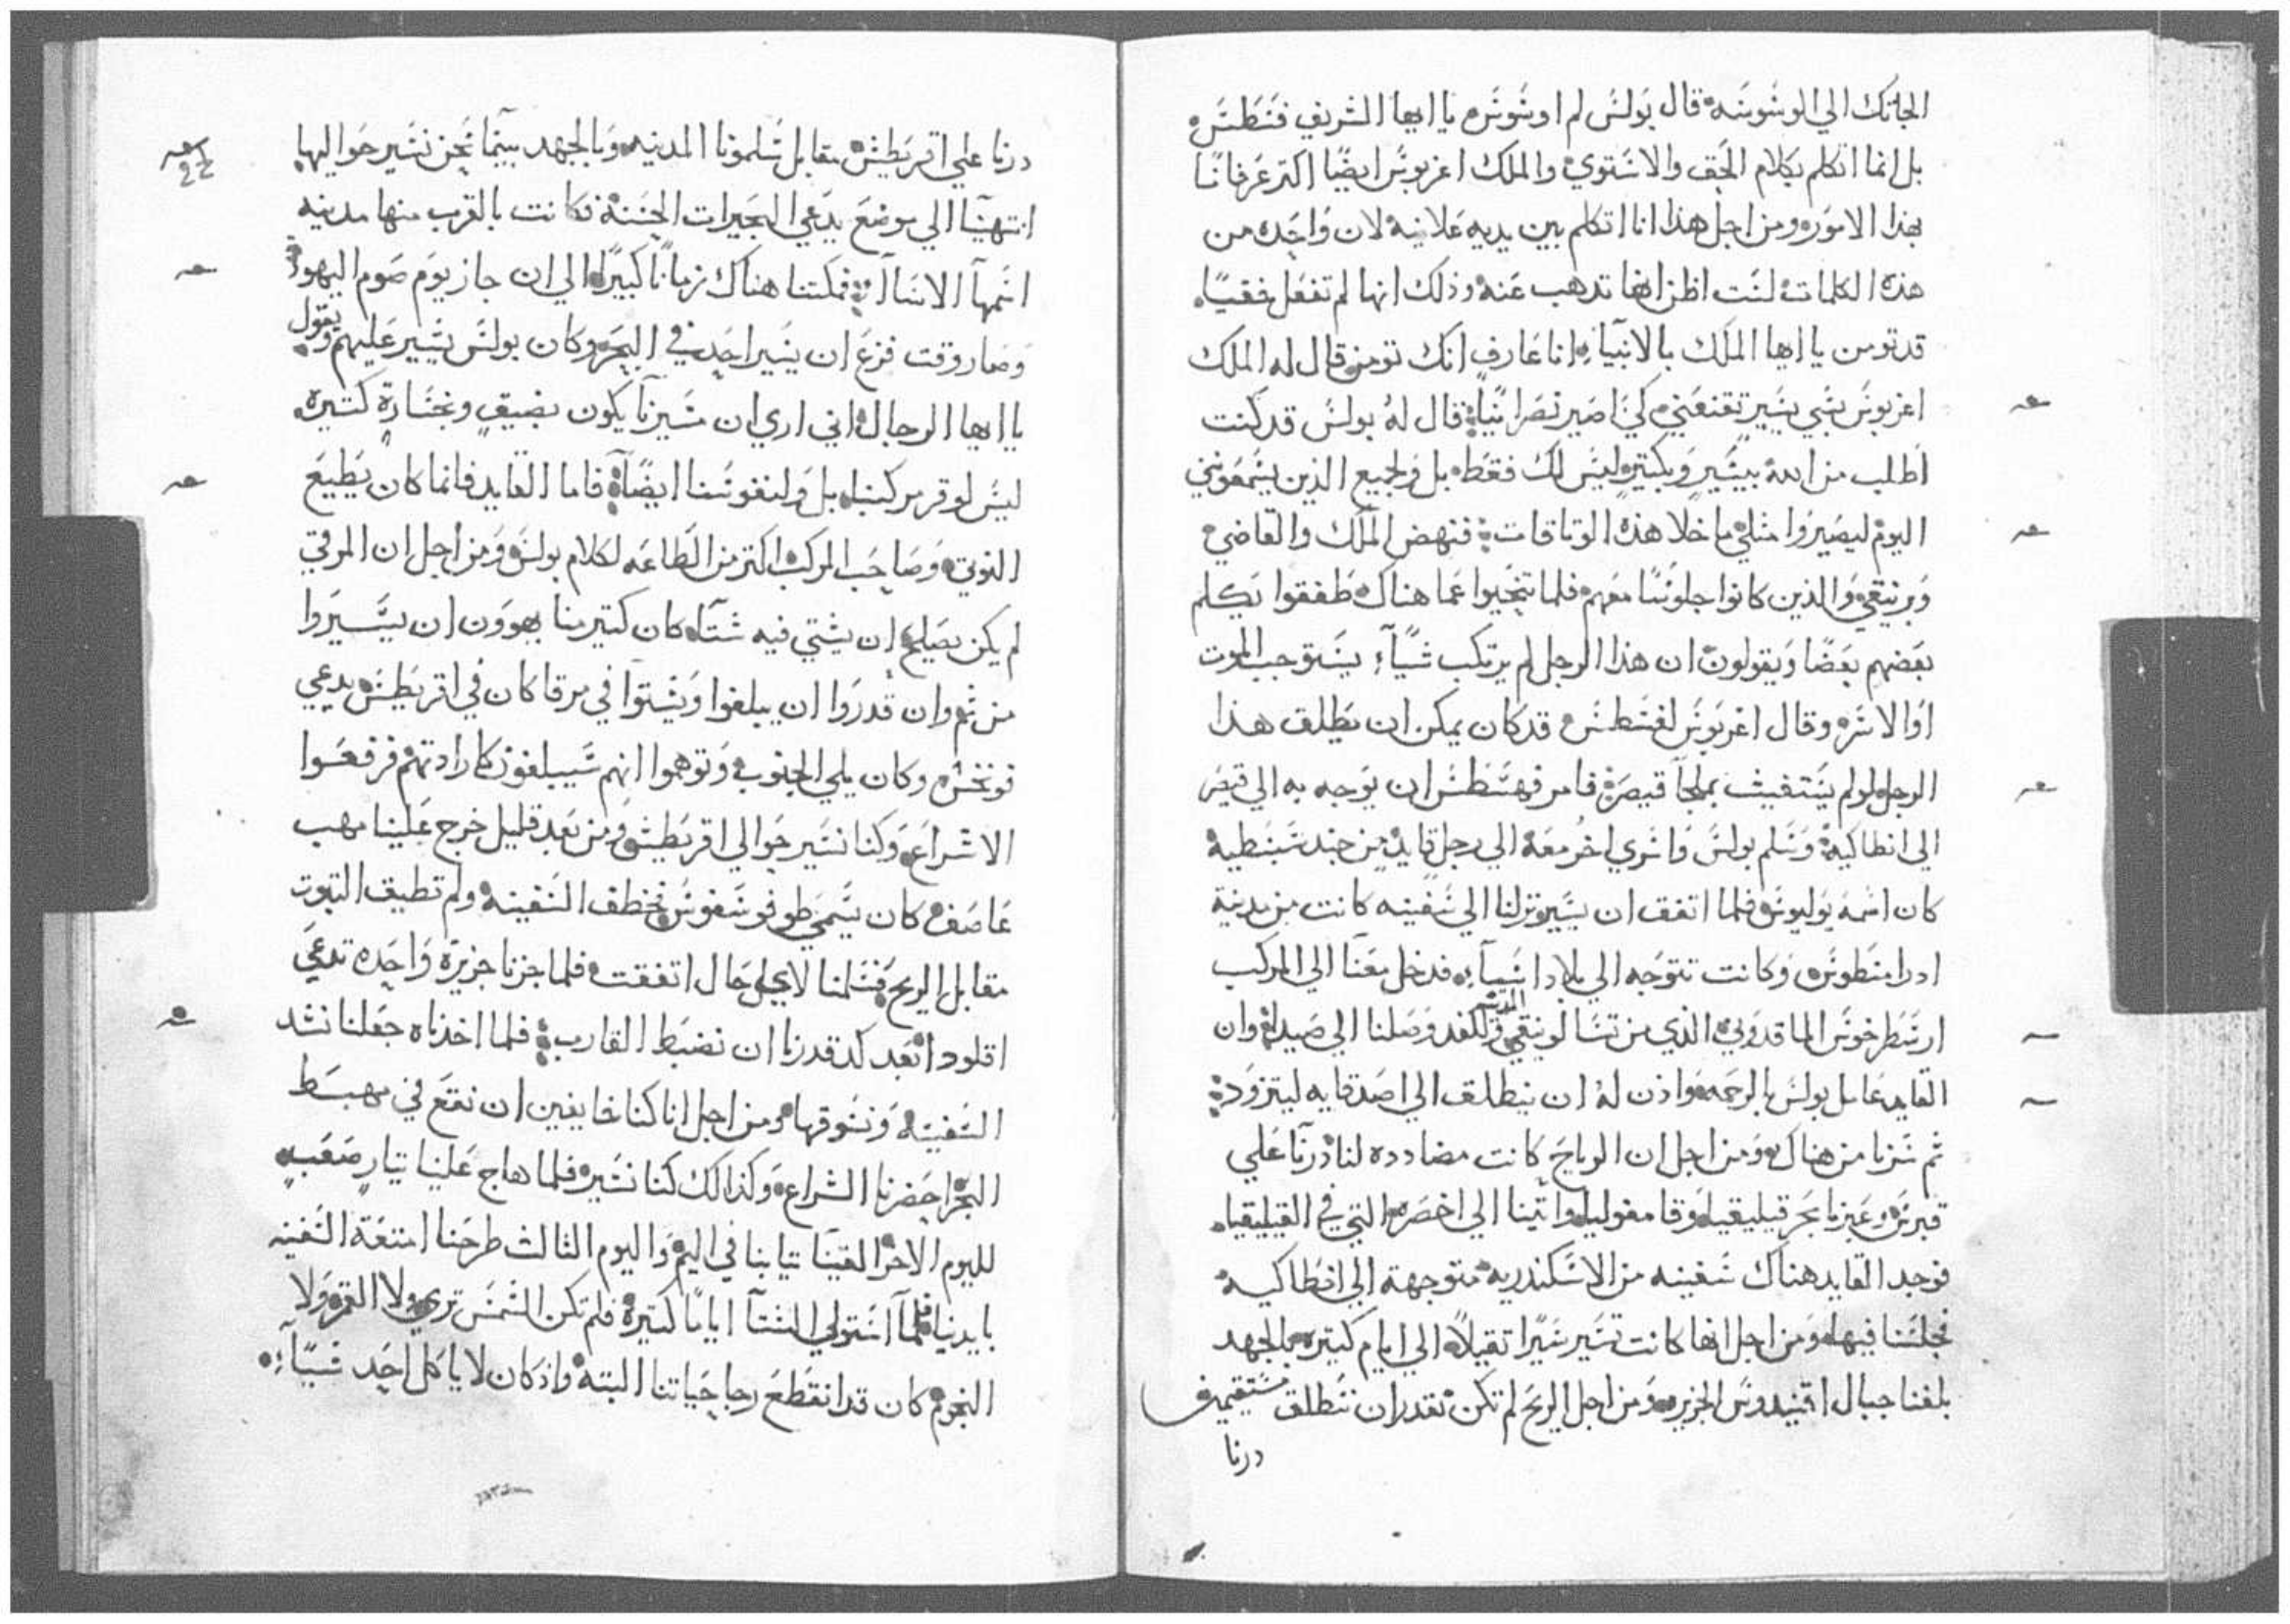 الجاتك الي الوشوشه قال بولش لم اوشوش يا ايها الشريف فشطش
بل انما اتكلم بكلام الحق والاشتوي والملك اغربوش ايضًا اكتر عرفانًا
بهذا الامور ومن اجل هذا انا اتكلم بين يديه علانيه لان واحده من
هذه الكلمات لشت اظن انها تدهب عنه وذلك انها لم تفعل خفيًا
قد تومن يا ايها الملك بالانبياء انا عارف انك تومن قال له الملك
اغربوش بشي يشير تقنعني كي اصير نصرانيًا قال له بولش قد كنت
اطلب من الله بيشيرٍ وبكتيرٍ ليش لك فقط بل ولجميع الذين يشمعوني
اليوم ليصيروا مثلي ما خلا هذه الوتاقات فنهض الملك والقاضي
وبرنيقي والذين كانوا جلوشًا معهم فلما تنحيوا عما هناك طفقوا يكلم
بعضهم بعضًا ويقولون ان هذا الرجل لم يرتكب شياء يشتوجب الموت
او الاشر وقال اغربوش لفشطش قد كان يمكن ان يطلق هذا
الرجل لو لم يشتغيث بملجا قيصر فامر فهشطش ان يوجه به الي قيصر
الي انطاكية وشلم بولش واشري اخر معه الي رجل قايد من جند شبشطية
كان اشمه يوليوش فلما اتفق ان يشير نزلنا الي شفينه كانت من مدينة
ادرامنطوش وكانت تتوجه الي بلاد اشيا فدخل معنا الي المركب
ارشطرخوش الماقدوني الذي من تشالونيقي المدينه وللغد وصلنا الي صيدا وان
القايد عامل بولش بالرحمه واذن له ان ينطلق الي اصدقايه ليتزود
ثم شرنا من هناك ومن اجل ان الرياح كانت مضادده لنا درنا علي
قبرش وعبرنا بحر قيليقيا وقامفوليا واتينا الي اخصره التي في القيليقيا
فوجد القايد هناك شفينه من الاشكندرية متوجهة الي انطاكية
فجلشنا فيها ومن اجل انها كانت تشير شيرًا تقيلًا الي ايام كتيره بالجهد
بلغنا جبال اقنيدوش الجزيره ومن اجل الريح لم تكن نقدر ان ننطلق مشتقيمين
درنا
درنا علي اقريطش مقابل شلمونا المدينه وبالجهد بينما نحن نشير حواليها
انتهينا الي موضع يدعي البحيرات الحشنة وكانت بالقرب منها مدينه
اشمها الاشا فمكتنا هناك زمانًا كبيرًا الي ان جاز يوم صوم اليهود
وصار وقت فزع ان يشير احد في البحر وكان بولش يشير عليهم ويقول
يا ايها الرجال اني اري ان مشيرنا يكون بضيق وبخشارة كتيره
ليش لوقر مركبنا بل ولنفوشنا ايضًا فاما القايد فانما كان يطيع
النوتي وصاحب المركب اكتر من الطاعه لكلام بولش ومن اجل ان المرفي
لم يكن يصلح ان يشتي فيه شتا كان كتير منا يهوون ان يشيروا
من ثم وان قدروا ان يبلغوا ويشتوا في مرفا كان في اقريطش يدعي
فونخش وكان يلي الجنوب وتوهموا انهم شيبلغون كارادتهم فرفعوا
الاشراع وكنا نشير حوالي اقريطش ومن بعد قليل خرج علينا مهب
عاصف كان يشمي طوفوشقوش فخطف الشفينه ولم تطيق التبوت
مقابل الريح فشلمنا لاي حال اتفقت فلما جزنا جزيرة واحده تدعي
اقلودا بعد كد قدرنا ان نضبط القارب فلما اخذناه جعلنا نشد
الشفينه ونشوقها ومن اجل انا كنا خايفين ان نقع في مهبط
البحر احضرنا الشراع وكذالك كنا نشير فلما هاج علينا تيار صعب
لليوم الاخر القينا تيابنا في اليم واليوم الثالث طرحنا امتعة الشفينه
بايدينا فلما اشتولي الشتا ايامًا كتيرة فلم تكن الشمش تري ولا القمر ولا
النجوم كان قد انقطع رجا حياتنا البتة واذ كان لا ياكل احد شياء